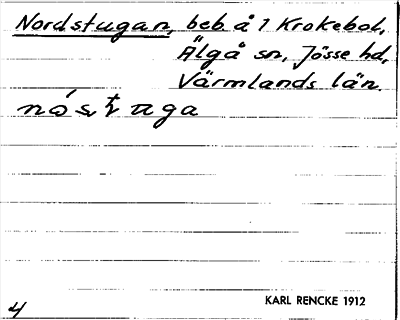 Nordstugan, beb. å 1 Krokebol,
Älgå sn, Jösse hd,
Värmlands län.
4
KARL RENCKE 1912